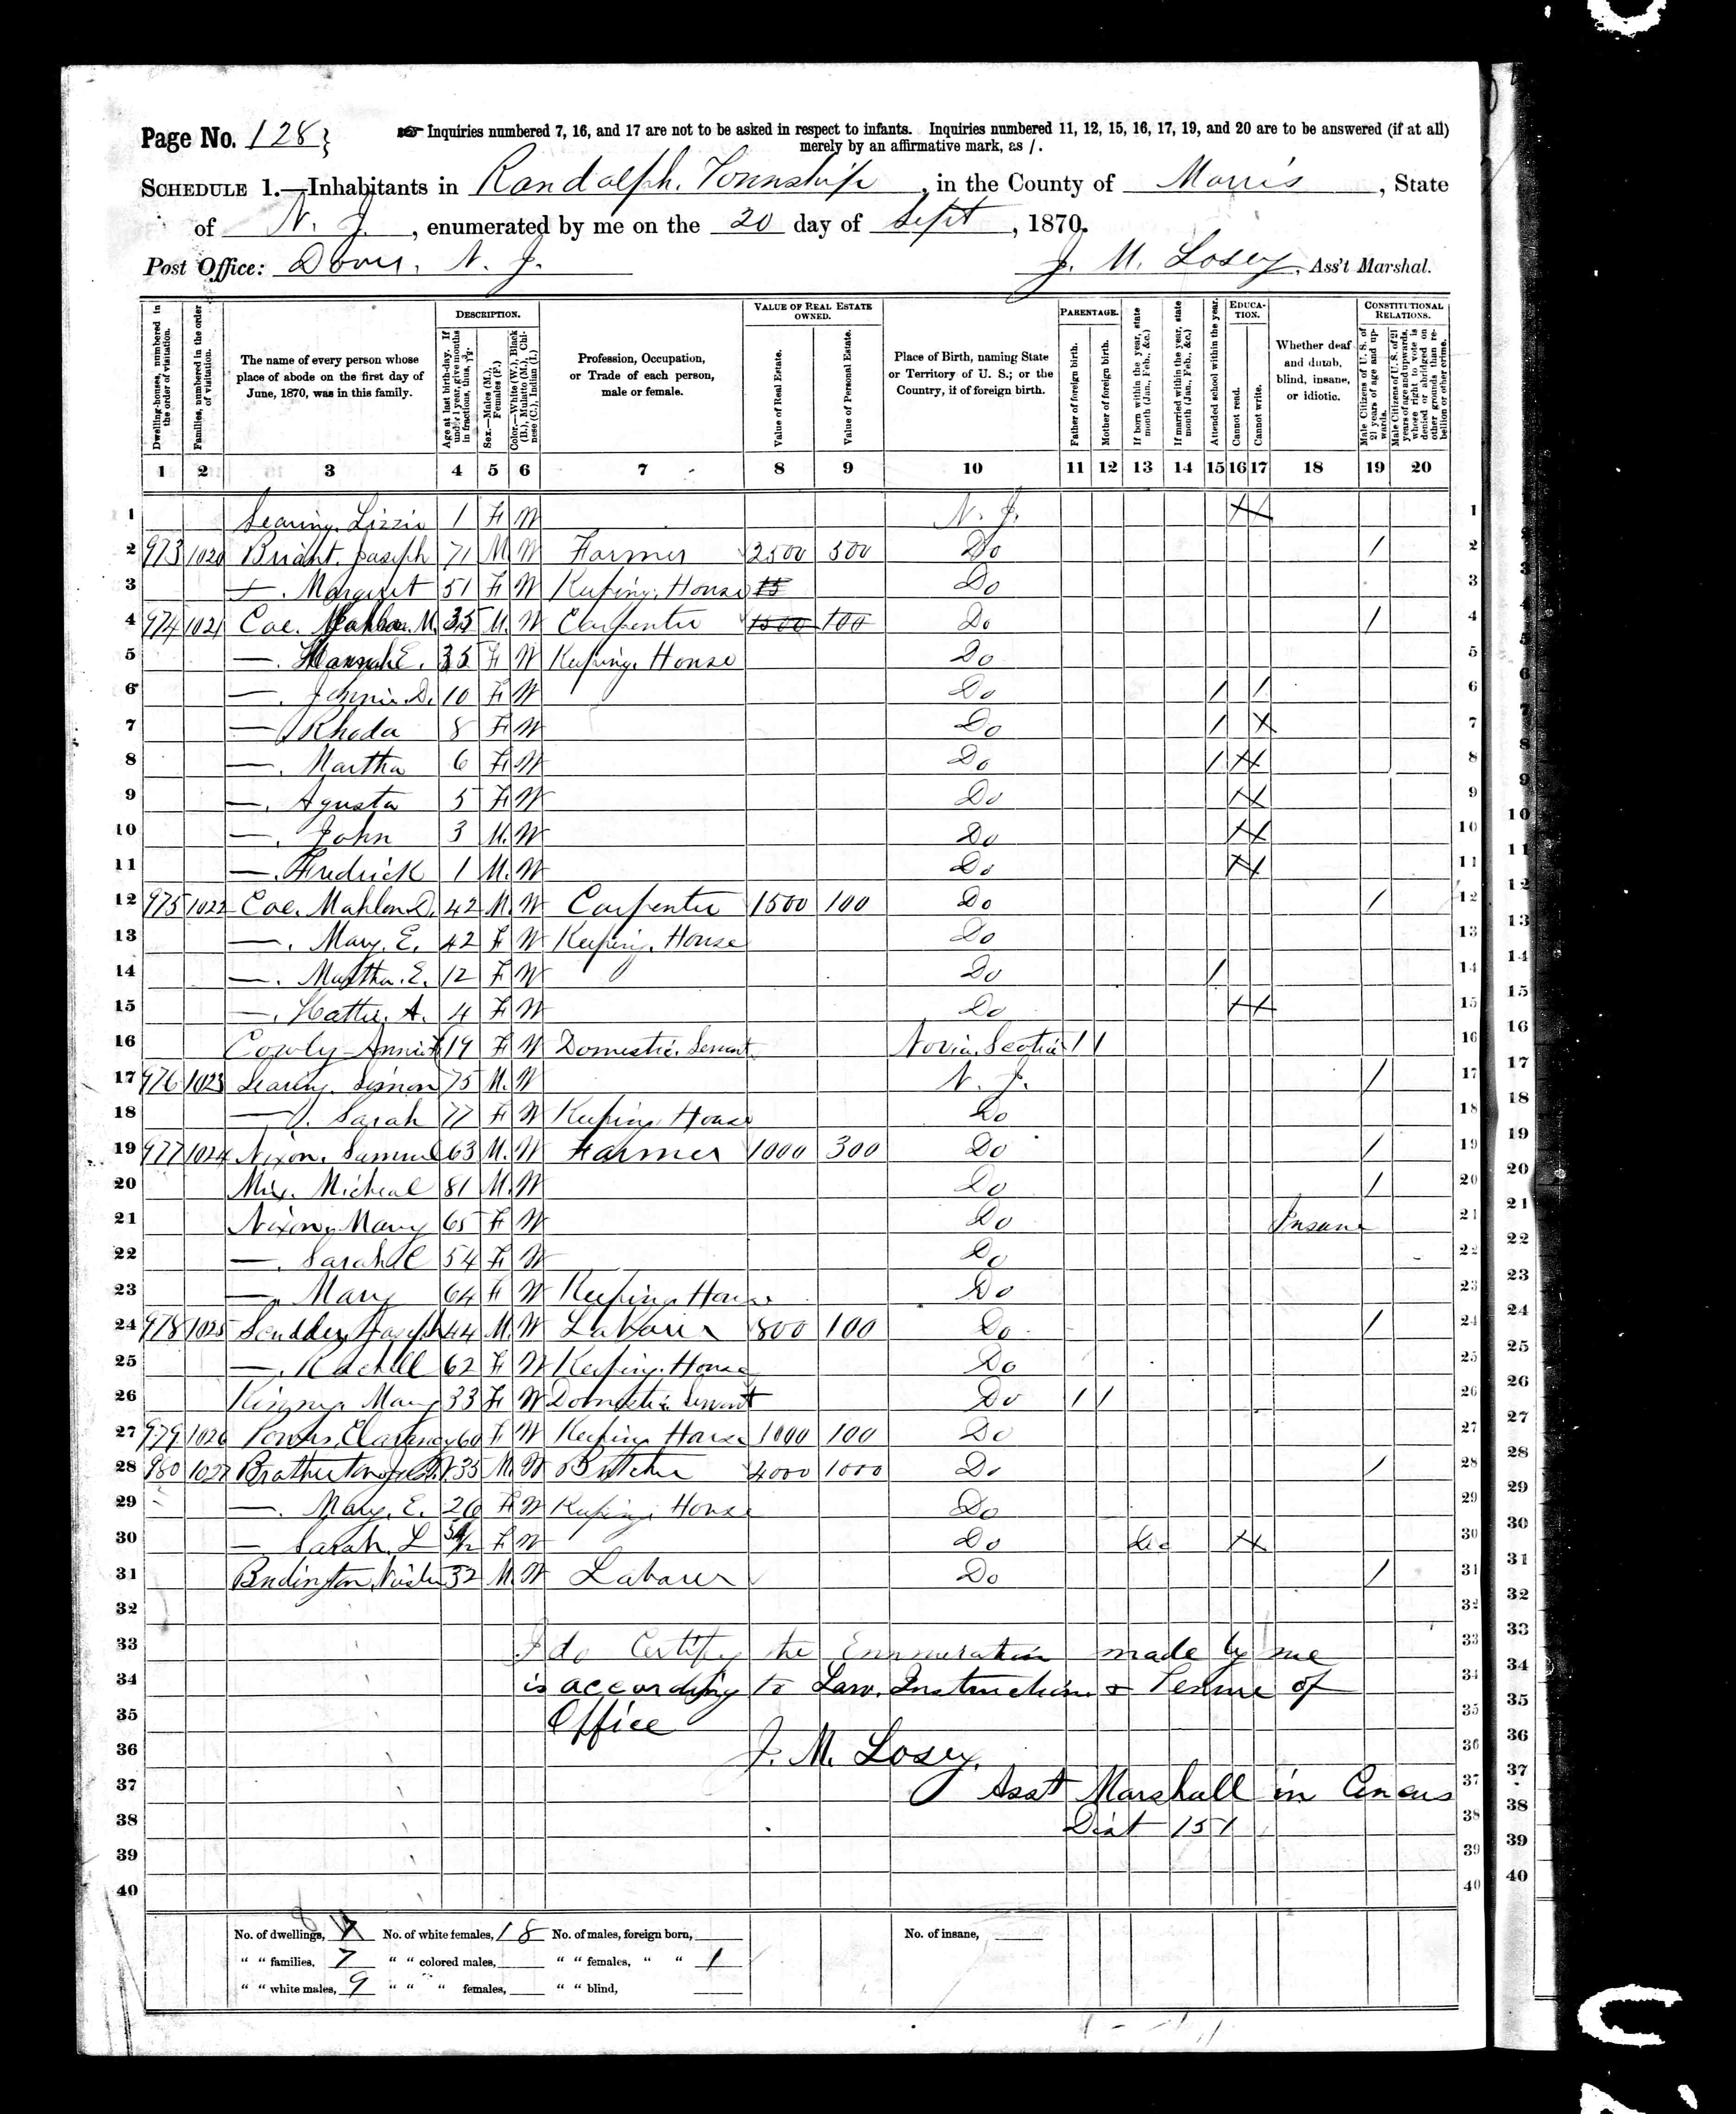 Page No. 128} Inquiries numbered 7, 16, and 17 are not to be asked in respect to infants. Inquiries numbered 11, 12, 15, 16, 17, 19, and 20 are to be answered (if at all)
merely by an affirmative mark, as /.
SCHEDULE 1.—Inhabitants in Randolph. Township, in the County of Morris, State
of N. J., enumerated by me on the 20 day of Sept, 1870.
Post Office: Dover, N. J. J. M. Losey, Ass't Marshal.
Dwelling-houses, numbered in the order of visitation.
Families, numbered in the order of visitation.
The name of every person whose place of abode on the first day of June, 1870, was in this family.
DESCRIPTION.
Age at last birth-day. If under 1 year, give months in fractions, thus, 3/12.
Sex.—Males (M.), Females (F.)
Color.—White (W.), Black (B.), Mulatto (M.), Chinese (C.), Indian (I.)
Profession, Occupation, or Trade of each person, male or female.
VALUE OF REAL ESTATE OWNED.
Value of Real Estate.
Value of Personal Estate.
Place of Birth, naming State or Territory of U. S.; or the Country, if of foreign birth.
PARENTAGE.
Father of foreign birth.
Mother of foreign birth.
If born within the year, state month (Jan., Feb., &c.)
If married within the year, state month (Jan., Feb., &c.)
Attended school within the year.
EDUCATION.
Cannot read.
Cannot write.
Whether deaf and dumb, blind, insane, or idiotic.
CONSTITUTIONAL RELATIONS.
Male Citizens of U. S. of 21 years of age and upwards.
Male Citizens of U. S. of 21 years of age and upwards, whose right to vote is denied or abridged on other grounds than rebellion or other crime.
1 2 3 4 5 6 7 8 9 10 11 12 13 14 15 16 17 18 19 20
1 Searing, Lizzie 1 F W N. J. 1
2 973 1020 Briant, Joseph 71 M W Farmer 2500 500 Do / 2
3 Margaret 51 F W Keeping, House Do 3
4 974 1021 Coe. M. 35 M. W Carpenter 1500 100 Do / 4
5 —. Hannah E. 35 F W Keeping, House Do 5
6 —. Jennie D. 10 F W Do / / 6
7 — Rhoda 8 F W Do / 7
8 —. Martha 6 F W Do / 8
9 —. Agusta 5 F W Do 9
10 —. John 3 M. W Do 10
11 —. Fredrick 1 M. W Do 11
12 975 1022 Coe. Mahlon D. 42 M. W Carpenter 1500 100 Do / 12
13 —. Mary. E. 42 F W Keeping, House Do 13
14 —. Martha. E. 12 F W Do / 14
15 —. Hattie. A. 4 F W Do 15
16 Annie 19 F W Domestic. Servant Novia, Scotia / / 16
17 976 1023 Searing. Simon 75 M. W N. J. / 17
18 —. Sarah 77 F W Keeping House Do 18
19 977 1024 Nixon. Samuel 63 M. W Farmer 1000 300 Do / 19
20 Micheal 81 M. W Do / 20
21 Nixon, Mary 65 F W Do Insane 21
22 —. Sarah C 54 F W Do 22
23 —. Mary 64 F W Keeping House Do 23
24 978 1025 Scudder, Joseph 44 M. W Laborer 800 100 Do / 24
25 —. Rachell 62 F W Keeping. House Do 25
26 Mary 33 F W Domestic Servant Do / / 26
27 979 1026 Powers, 60 F W Keeping House 1000 100 Do 27
28 980 1027 Brotherton 35 M. W Butcher 4000 1000 Do / 28
29 —. Mary, E. 26 F W Keeping House Do 29
30 — Sarah. L F W Do Dec 30
31 Budington, 32 M. W Laborer Do / 31
32 32
33 I do Certify the Enumeration made by me 33
34 is according to Law, Instructions & Tenure of 34
35 Office 35
36 J. M. Losey, 36
37 Asst Marshall in Cencus 37
38 Dist 151 38
39 39
40 40
No. of dwellings, 8 No. of white females, 18 No. of males, foreign born, No. of insane,
" " families, 7 " " colored males, " " females, " " 1
" " white males, 9 " " " females, " " blind,